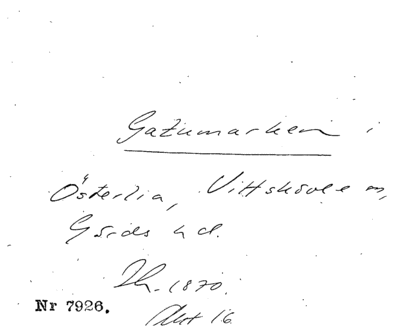 Gatumarken i
Österlia, Vittskövle sn,
Gärds hd.
1870.
Nr 7926. Akt 16